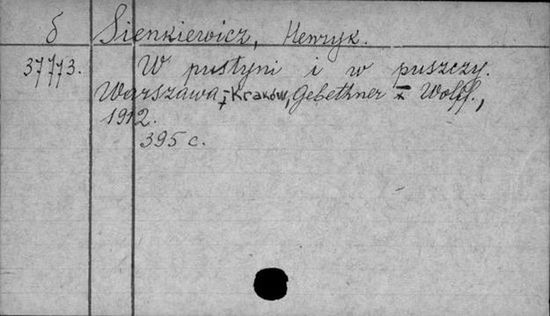 б Sienkiewicz, Henryk.
37773. W pustyni i w puszczy.
Warszawa, Kraków, Gebethner Wolff.,
1912.
395 c.